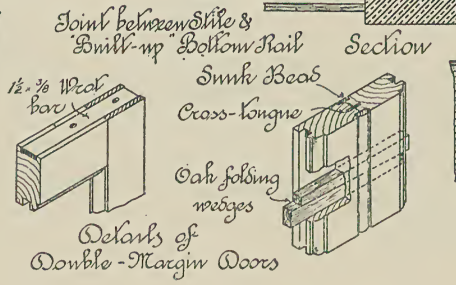 Joint between Stile &
"Built-up" Bottom Rail
Section
1½ × ⅜ Wrot
bar
Sunk Bead
Cross-tongue
Oak folding
wedges
Details of
Double-Margin Doors